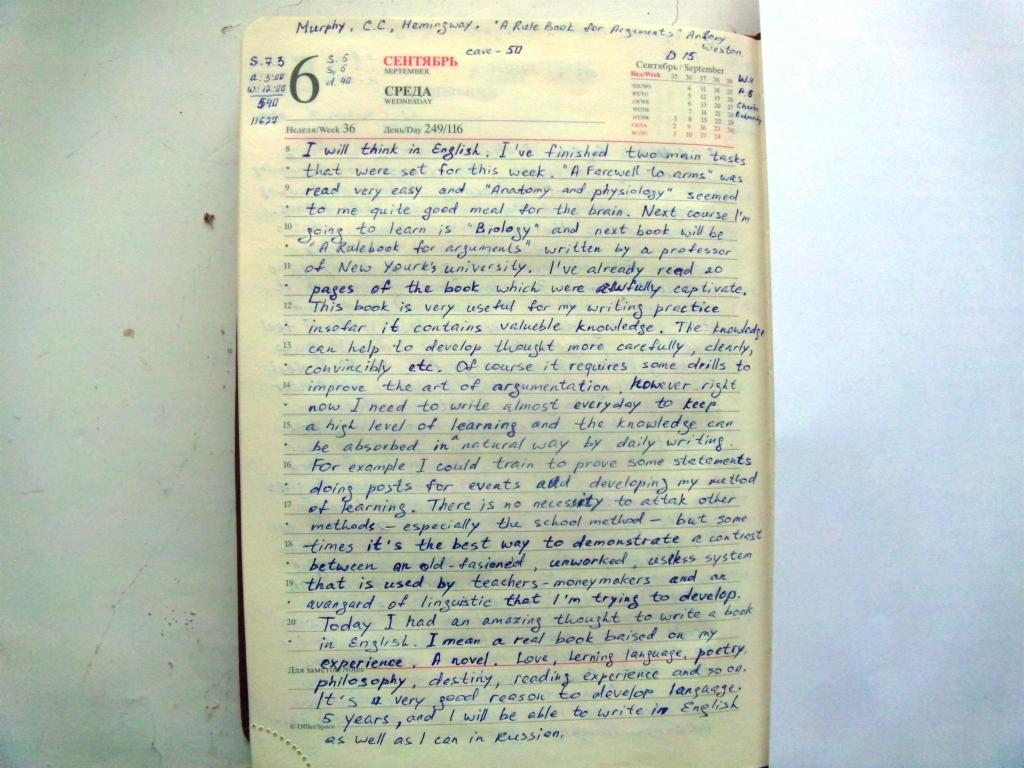 Murphy, C.C, Hemingway. "A Rule Book for Arguments" Antony
Weston
cave - 50
D 15
S. 7.5
a: 3:00
w: 12:00
540
11627
6
S. 5
S, 6
d. 40
СЕНТЯБРЬ
SEPTEMBER
СРЕДА
WEDNESDAY
Сентябрь / September
Нед/Week 35 36 37 38 39
ПН/MO 4 11 18 25
ВТ/TU 5 12 19 26
СР/WE 6 13 20 27
ЧТ/TH 7 14 21 28
ПТ/FR 1 8 15 22 29
СБ/SA 2 9 16 23 30
ВС/SU 3 10 17 24
Неделя/Week 36 День/Day 249/116
8 I will think in English. I've finished two main tasks
that were set for this week. "A Farewell to arms" was
9 read very easy and "Anatomy and physiology" seemed
to me quite good meal for the brain. Next course I'm
10 going to learn is "Biology" and next book will be
"A Rulebook for arguments" written by a professor
11 of New Yourk's university. I've already read 20
pages of the book which were awfully captivate.
12 This book is very useful for my writing practice
insofar it contains valueble knowledge. The knowledge
13 can help to develop thought more carefully, clearly,
convincibly etc. Of course it requires some drills to
14 improve the art of argumentation. However right
now I need to write almost everyday to keep
15 a high level of learning and the knowledge can
be absorbed in a natural way by daily writing.
16 For example I could train to prove some statements
doing posts for events and developing my method
17 of learning. There is no necessity to attak other
methods - especially the school method - but some
18 times it's the best way to demonstrate a contrast
between an old-fasioned, unworked, useless system
19 that is used by teachers-moneymakers and an
avangard of linguistic that I'm trying to develop.
20 Today I had an amazing thought to write a book
in English. I mean a real book baised on my
experience. A novel. Love, lerning language, poetry,
Для заметок/Notes
philosophy, destiny, reading experience and so on.
It's a very good reason to develop language.
5 years, and I will be able to write in English
© OfficeSpace
as well as I can in Russian.